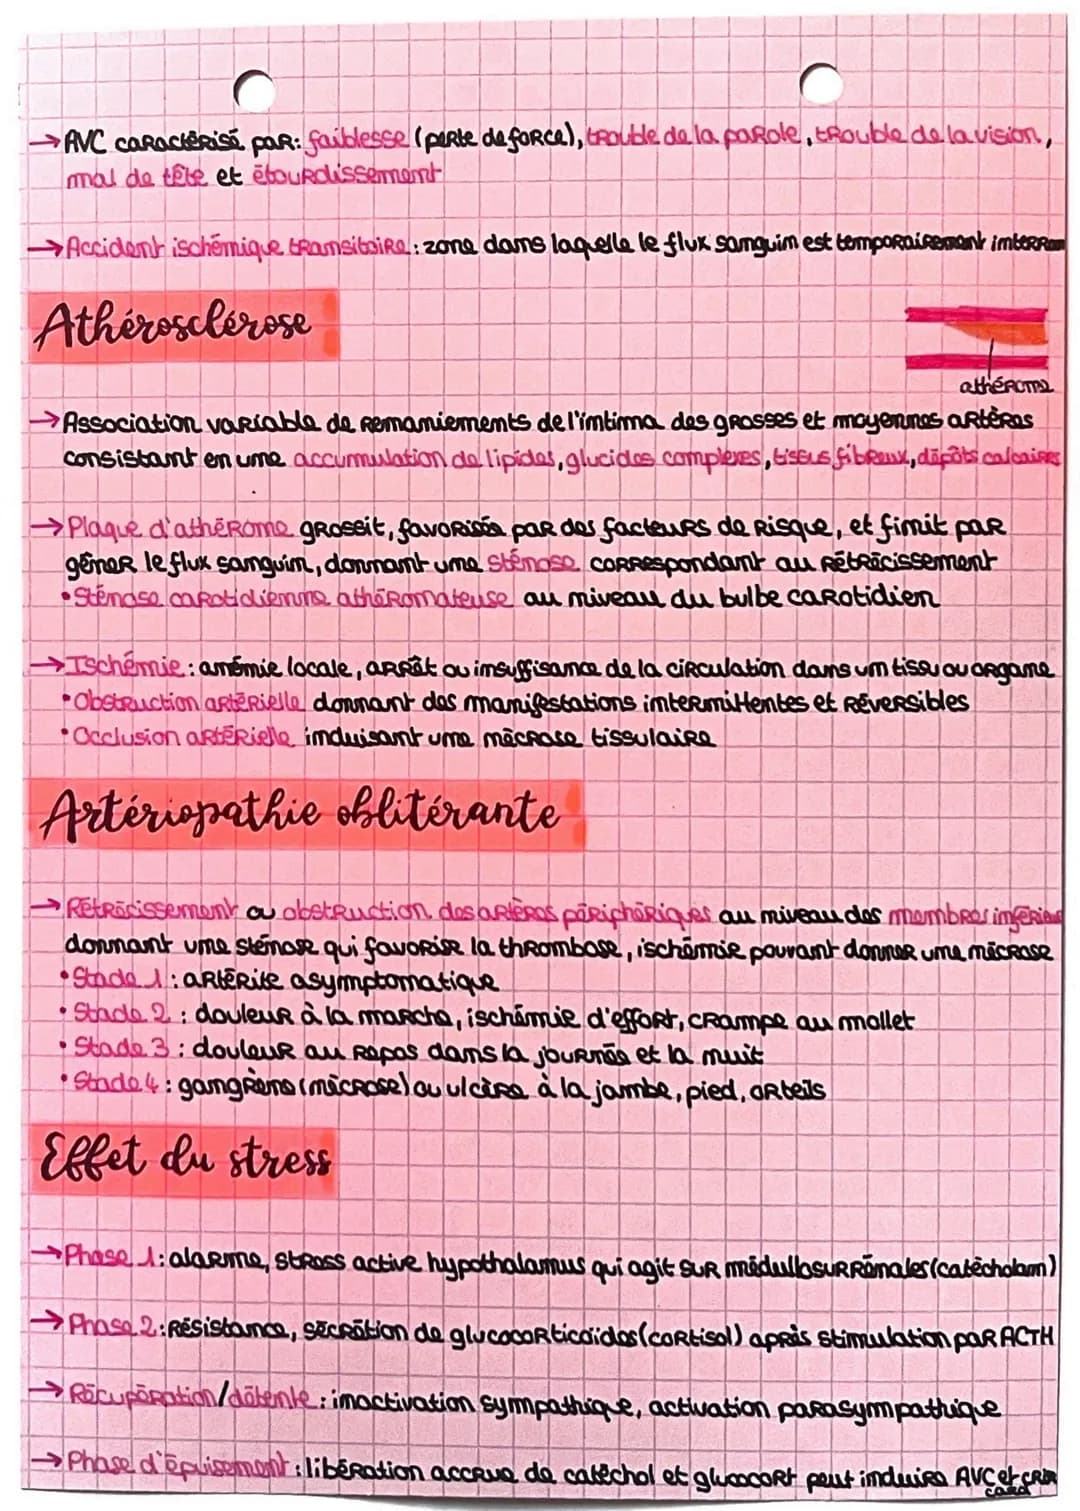 → AVC caractérisé par: faiblesse (perte de force), trouble de la parole, trouble de la vision,
mal de tête et étourdissement
→ Accident ischémique transitoire : zone dans laquelle le flux sanguin est temporairement interrom
Athérosclérose
athérome
→ Association variable de remaniements de l'intima des grosses et moyennes artères
consistant en une accumulation de lipides, glucides complexes, tissus fibreux, dépôts calcaires
→ Plaque d'athérome grossit, favorisée par des facteurs de risque, et finit par
gêner le flux sanguin, donnant une sténose correspondant au rétrécissement
• Sténose carotidienne athéromateuse au niveau du bulbe carotidien
→ Ischémie : anémie locale, arrêt ou insuffisance de la circulation dans un tissu ou organe
• Obstruction artérielle donnant des manifestations intermittentes et réversibles
• Occlusion artérielle induisant une nécrose tissulaire
Artériopathie oblitérante
→ Rétrécissement ou obstruction des artères périphériques au niveau des membres inférieur
donnant une sténose qui favorise la thrombose, ischémie pouvant donner une nécrose
• Stade 1 : artérite asymptomatique
• Stade 2 : douleur à la marche, ischémie d'effort, crampe au mollet
• Stade 3 : douleur au repos dans la journée et la nuit
• Stade 4 : gangrène (nécrose) ou ulcère à la jambe, pied, orteils
Effet du stress
→ Phase 1 : alarme, stress active hypothalamus qui agit sur médullosurrénales (catécholam)
→ Phase 2 : Résistance, sécrétion de glucocorticoïdes (cortisol) après stimulation par ACTH
→ Récupération/détente : inactivation sympathique, activation parasympathique
→ Phase d'épuisement : libération accrue de catéchol et glucocort peut induire AVC et crise
card